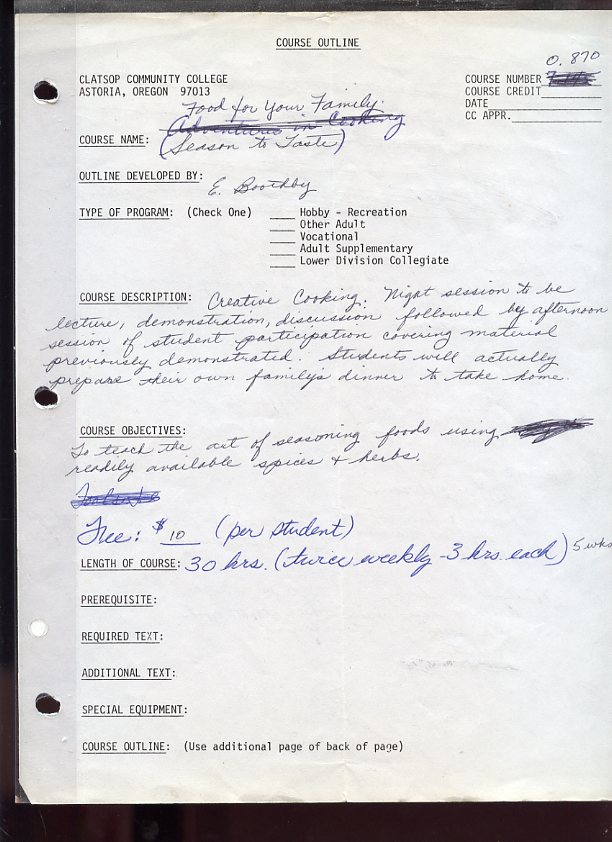 COURSE OUTLINE
0.870
CLATSOP COMMUNITY COLLEGE
ASTORIA, OREGON 97013
COURSE NUMBER
COURSE CREDIT
DATE
CC APPR.
Food for Your Family.
Adventures in Cooking
COURSE NAME: (Season to Taste)
OUTLINE DEVELOPED BY: E. Boothby
TYPE OF PROGRAM: (Check One)
Hobby - Recreation
Other Adult
Vocational
Adult Supplementary
Lower Division Collegiate
COURSE DESCRIPTION: Creative Cooking. Night session to be
lecture, demonstration, discussion followed by afternoon
session of student participation covering material
previously demonstrated. Students will actually
prepare their own family's dinner to take home.
COURSE OBJECTIVES:
To teach the art of seasoning foods using
readily available spices & herbs.
Fee: $10 (per student)
LENGTH OF COURSE: 30 hrs. (twice weekly - 3 hrs. each) 5 wks
PREREQUISITE:
REQUIRED TEXT:
ADDITIONAL TEXT:
SPECIAL EQUIPMENT:
COURSE OUTLINE: (Use additional page of back of page)